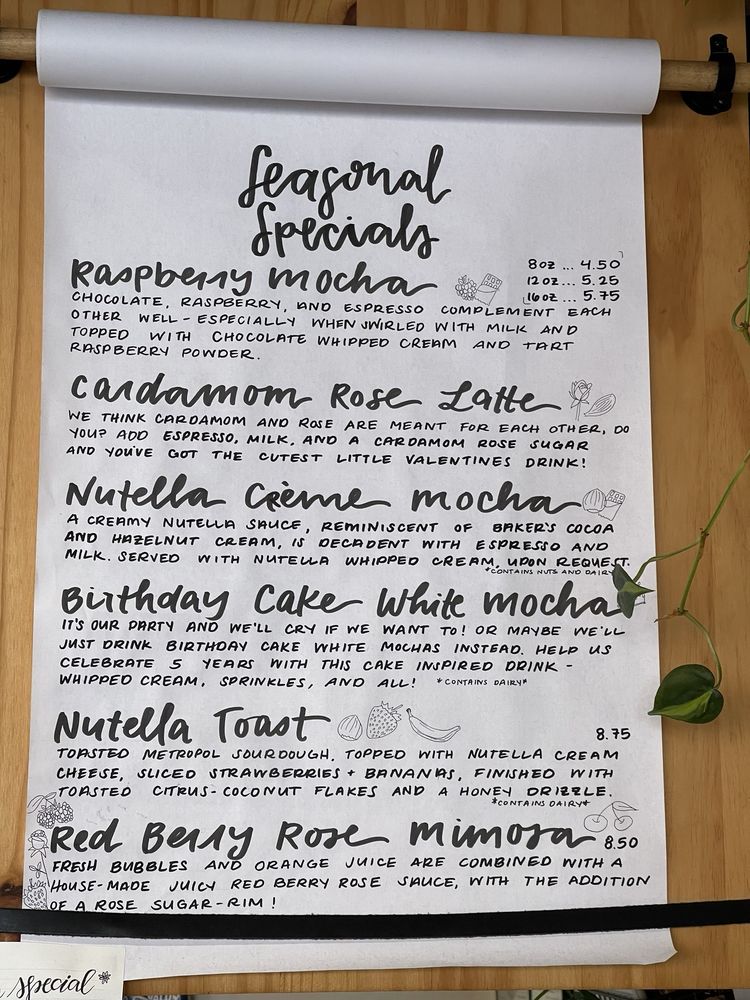 Seasonal
Specials
Raspberry mocha
8oz ... 4.50
12oz ... 5.25
16oz ... 5.75
CHOCOLATE, RASPBERRY, AND ESPRESSO COMPLEMENT EACH
OTHER WELL - ESPECIALLY WHEN SWIRLED WITH MILK AND
TOPPED WITH CHOCOLATE WHIPPED CREAM AND TART
RASPBERRY POWDER.
Cardamom Rose Latte
WE THINK CARDAMOM AND ROSE ARE MEANT FOR EACH OTHER, DO
YOU? ADD ESPRESSO, MILK, AND A CARDAMOM ROSE SUGAR
AND YOU'VE GOT THE CUTEST LITTLE VALENTINES DRINK!
Nutella Crème mocha
A CREAMY NUTELLA SAUCE, REMINISCENT OF BAKER'S COCOA
AND HAZELNUT CREAM, IS DECADENT WITH ESPRESSO AND
MILK. SERVED WITH NUTELLA WHIPPED CREAM, UPON REQUEST.
*CONTAINS NUTS AND DAIRY
Birthday Cake White mocha
IT'S OUR PARTY AND WE'LL CRY IF WE WANT TO! OR MAYBE WE'LL
JUST DRINK BIRTHDAY CAKE WHITE MOCHAS INSTEAD. HELP US
CELEBRATE 5 YEARS WITH THIS CAKE INSPIRED DRINK -
WHIPPED CREAM, SPRINKLES, AND ALL! *CONTAINS DAIRY*
Nutella Toast 8.75
TOASTED METROPOL SOURDOUGH, TOPPED WITH NUTELLA CREAM
CHEESE, SLICED STRAWBERRIES + BANANAS, FINISHED WITH
TOASTED CITRUS-COCONUT FLAKES AND A HONEY DRIZZLE.
*CONTAINS DAIRY*
Red Berry Rose mimosa 8.50
FRESH BUBBLES AND ORANGE JUICE ARE COMBINED WITH A
HOUSE-MADE JUICY RED BERRY ROSE SAUCE, WITH THE ADDITION
OF A ROSE SUGAR-RIM!
special*